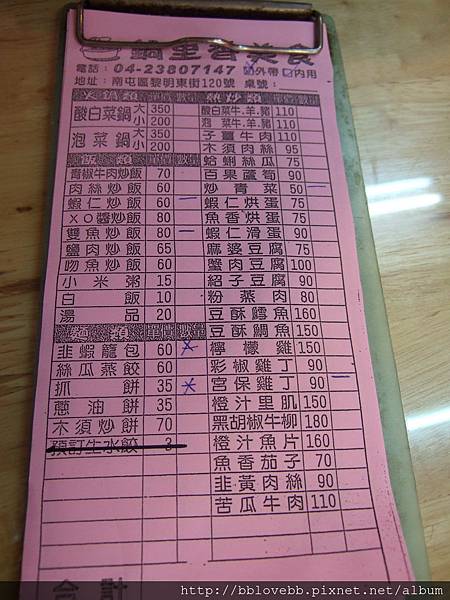 鍋里香美食
電話：04-23807147 外帶 內用
地址：南屯區黎明東街120號 桌號：
火鍋類 單價 數量
酸白菜鍋 大 350
小 200
泡菜鍋 大 350
小 200
飯類 單價 數量
青椒牛肉炒飯 70
肉絲炒飯 60
蝦仁炒飯 60 一
XO醬炒飯 80
雙魚炒飯 80 一
鹽肉炒飯 65
吻魚炒飯 60
小米粥 15
白飯 10
湯品 20
麵類 單價 數量
韭蝦籠包 60
絲瓜蒸餃 60
抓餅 35
蔥油餅 35
木須炒餅 70
預訂生水餃 3
合計
熱炒類 單價 數量
酸白菜牛.羊.豬 110
泡菜牛.羊.豬 110
子薑牛肉 110
木須肉絲 95
蛤蜊絲瓜 75
百果蘆筍 90
炒青菜 50 一
蝦仁烘蛋 75
魚香烘蛋 75
蝦仁滑蛋 90
麻婆豆腐 75
蟹肉豆腐 100
紹子豆腐 90
粉蒸肉 80
豆酥鱈魚 160
豆酥鯛魚 150
檸檬雞 150
彩椒雞丁 90
宮保雞丁 90 一
橙汁里肌 150
黑胡椒牛柳 180
橙汁魚片 160
魚香茄子 70
韭黃肉絲 90
苦瓜牛肉 110
http://bblovebb.pixnet.net/album